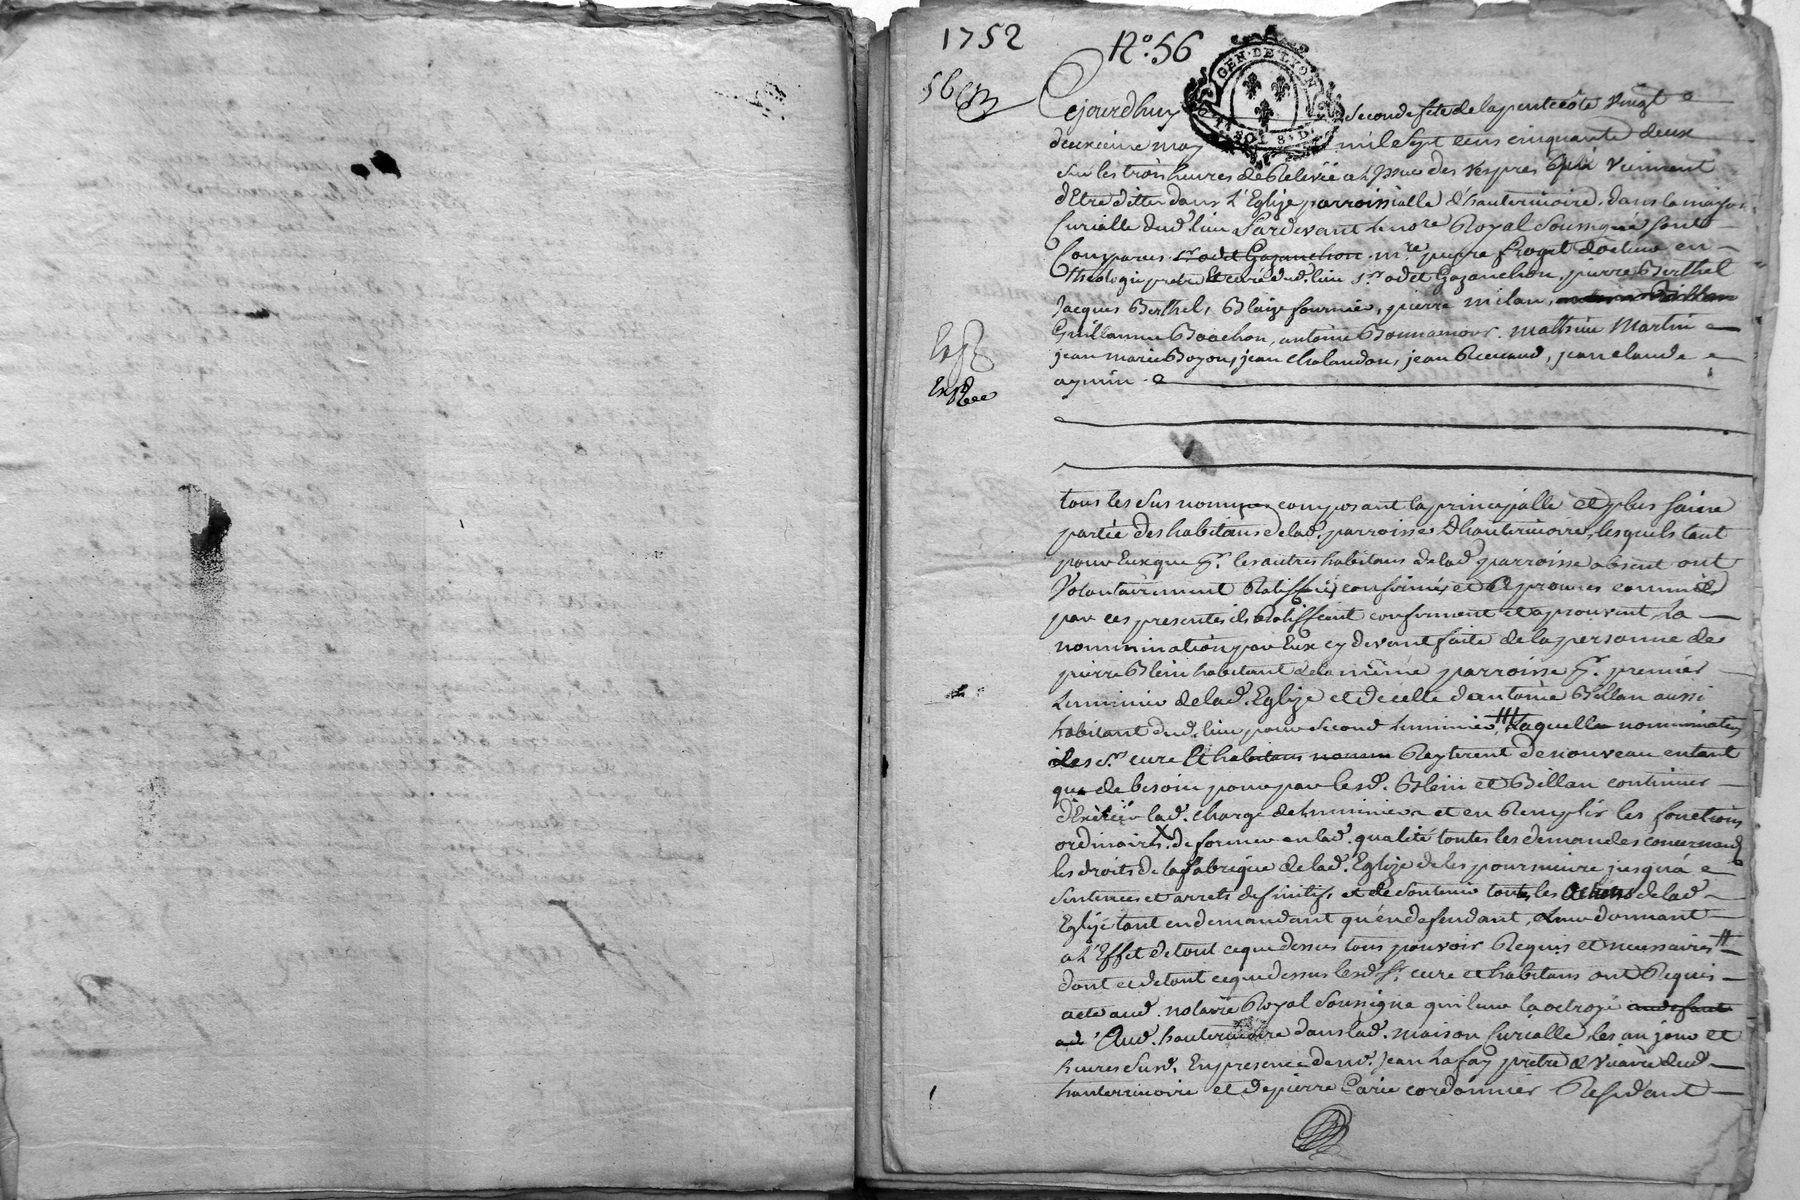 1752
N.º 56
56
GEN. DE LYON
Cejourdhuy seconde fete de la pentecôte vingt
deuxieme may mil sept cens cinquante deux
sur les trois heures de Relevée a L'issue des Vespres qui viennent
d'Etre dittes dans L'Eglize parroissialle d'hauterivoire, dans la maison
Curialle dud. lieu Pardevant le no.re Royal Soussigné sont
Comparus s.r odet Gazanchon m.re pierre Froget docteur en
theologie pretre Et curé dud. lieu s.r odet Gazanchon, pierre Berthel
Jacques Berthel, Blaize fournier, pierre milan,
Guillaume Boachon, antoine Bonnamour, mathieu Martin
jean marie Boyon, jean Chalandon, jean, jean claude
aymin
Exp.ée
tous les sus nommes composant la principalle et plus saine
partie des habitans de lad. parroisse d'hauterivoire, lesquels tant
pour Eux que p.r les autres habitans de lad. parroisse absent ont
Volontairement Ratiffié, confirmés et aprouvés comme
par ces presentes ils Ratiffient confirment et aprouvent La
nommination par Eux cy devant faite de la personne de
pierre Blein habitant de la même parroisse p.r premier
Luminier de lad. Eglize et de celle d'antoine Billan aussi
habitant dud. lieu pour second luminier, Laquelle nommination
Les s.r curé Et habitans Reyterent de nouveau entant
que de besoin pour par lesd. Blein et Billan continuer
d'Exercer lad. charge de luminier et en Remplir les fonctions
ordinaires, de former en lad. qualité toutes les demandes concernant
les droits de la fabrique de lad. Eglize de les poursuivre jusqu'a
Sentences et arrets definitifs, et de soutenir toutes les actions de lad.
Eglize tant en demandant qu'en defendant, Leur donnant
a L'Effet de tout ce que dessus tous pouvoir Requis et necessaires
dont et de tout ce que dessus lesd. s.r curé et habitans ont Requis
acte aud. notaire Royal Soussigné qui leur La octroyé
Aud. hauterivoire dans lad. maison Curialle les an jour et
heures susd. En presence de m.e jean Lafay pretre & Vicaire dud.
hauterivoire et de pierre Carie cordonnier Residant